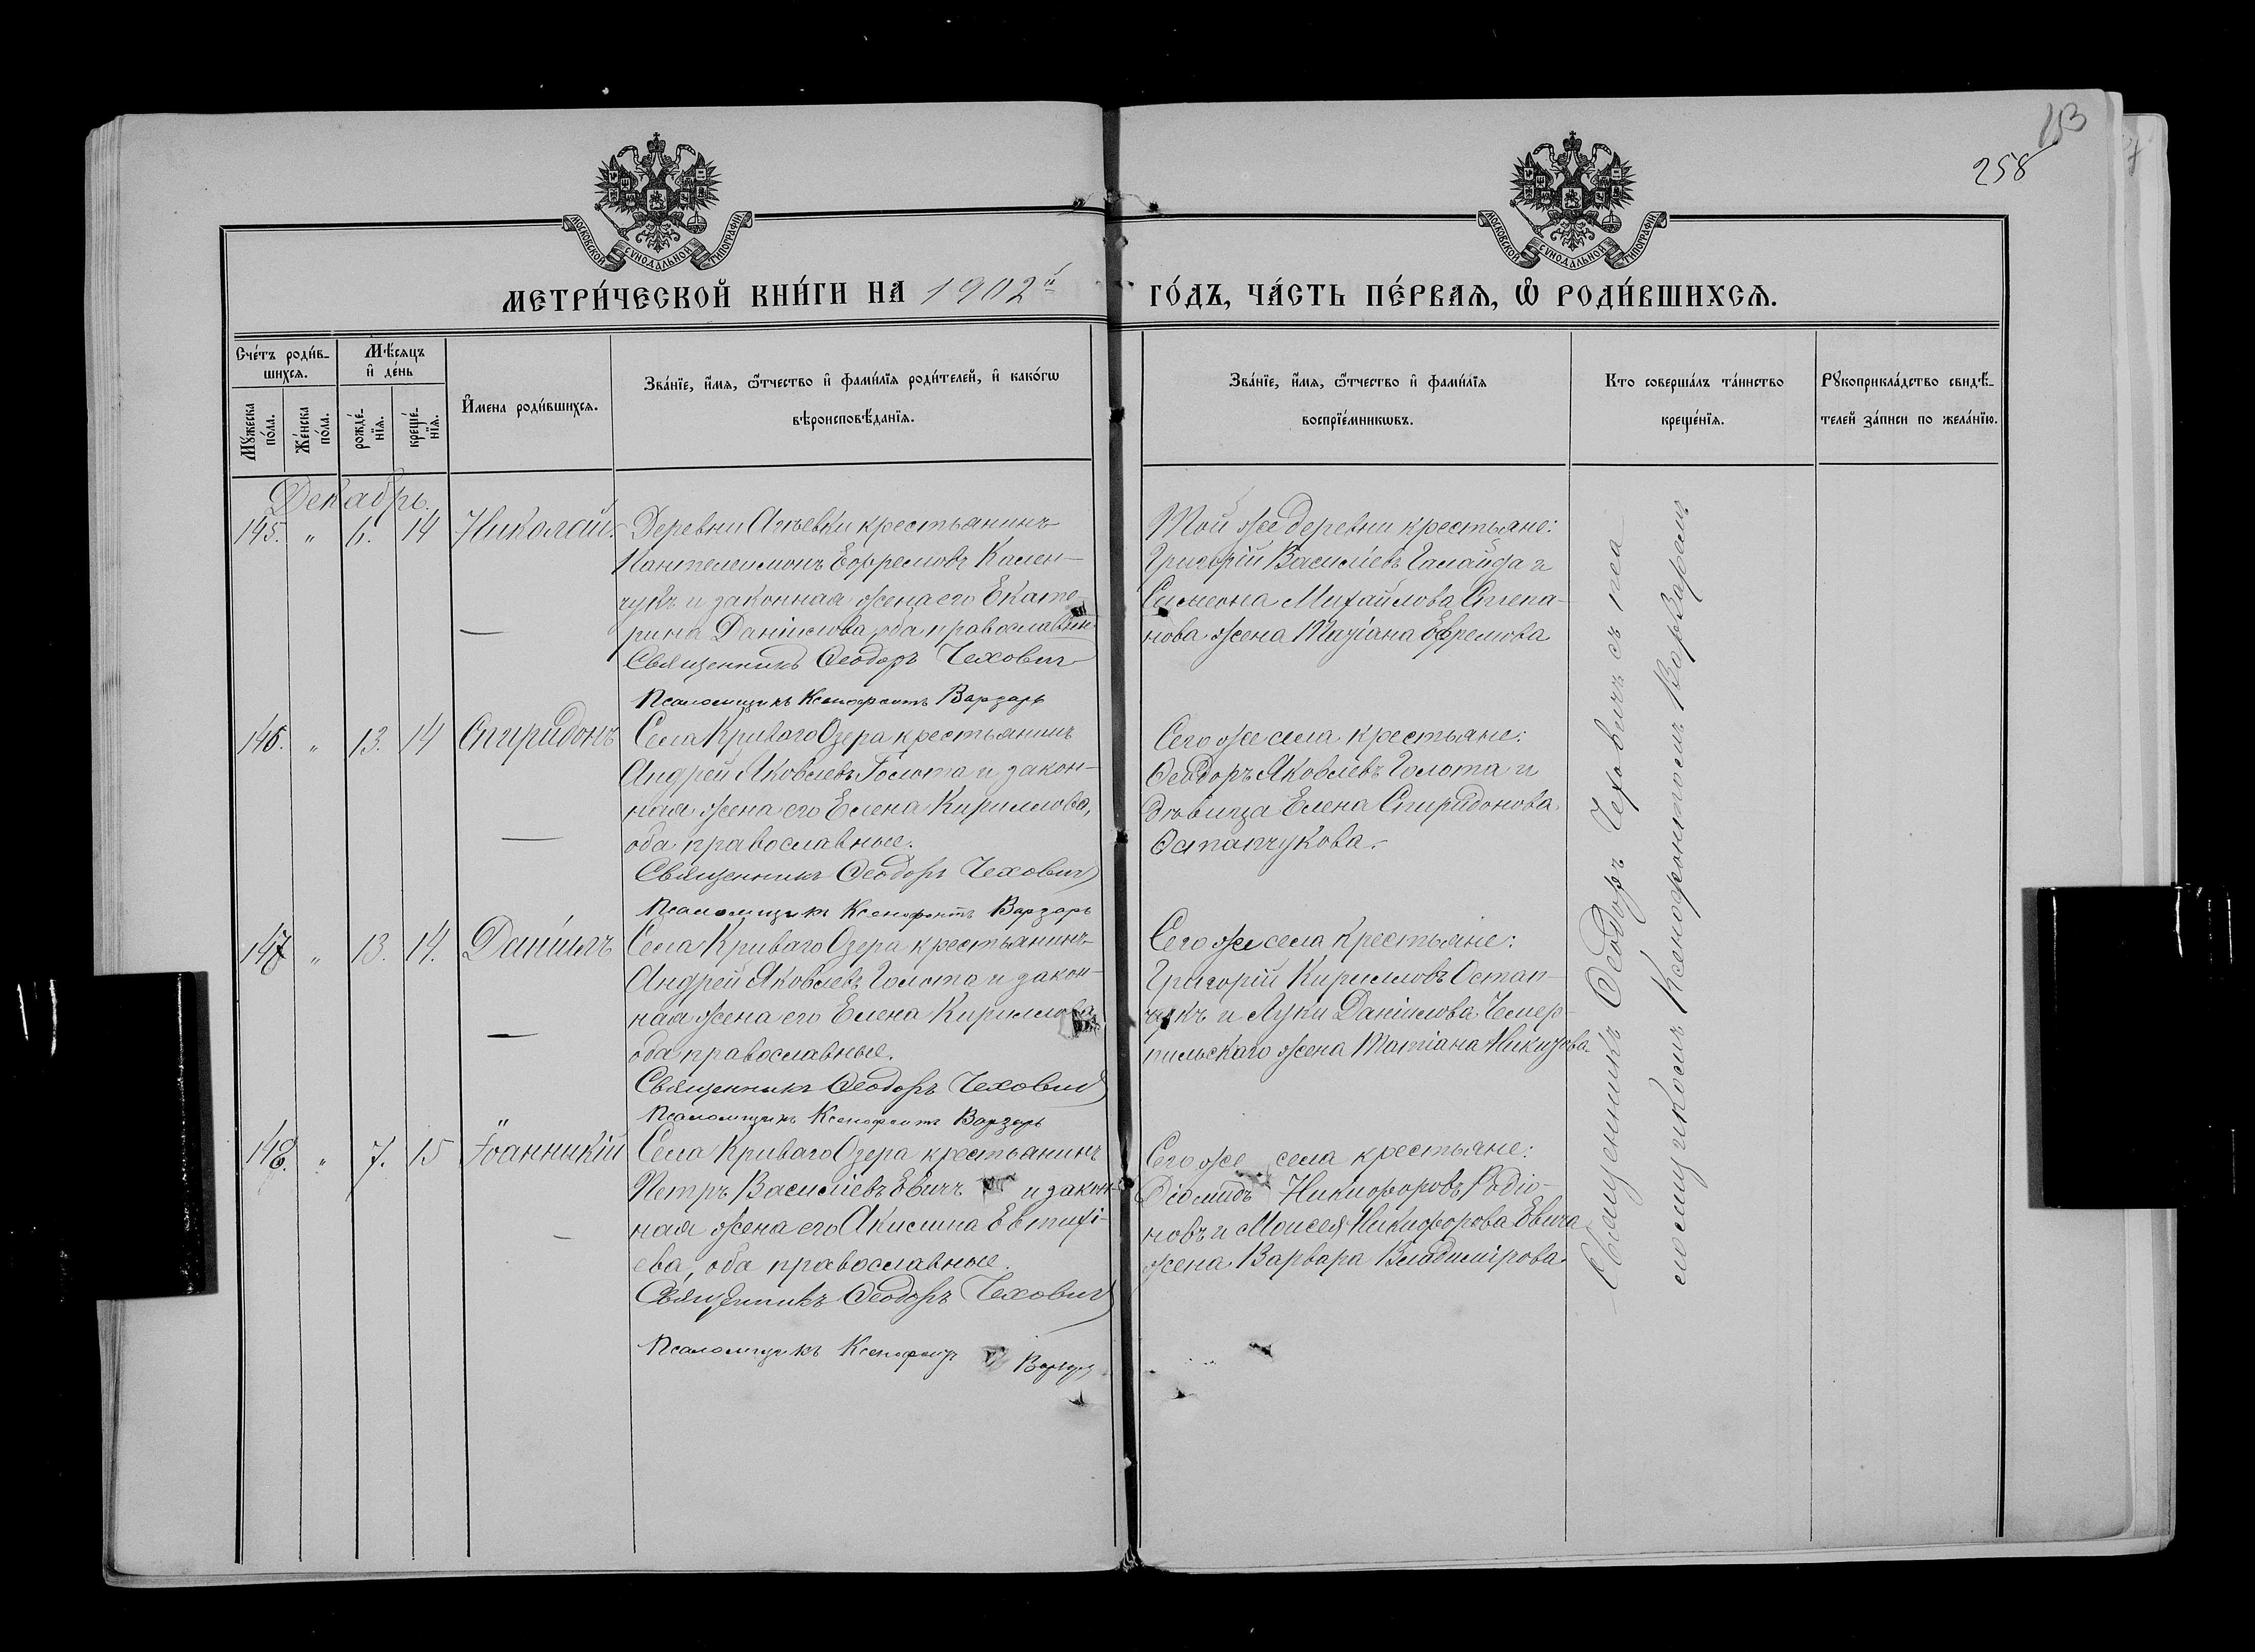 153
258
МОСКОВСКОЙ СѴНОДАЛЬНОЙ ТИПОГРАФІИ
МОСКОВСКОЙ СѴНОДАЛЬНОЙ ТИПОГРАФІИ
МЕТРИ́ЧЕСКОЙ КНИ́ГИ НА 1902й ГО́ДЪ, ЧА́СТЬ ПЕ́РВАѦ, Ѡ҆ РОДИ́ВШИХСѦ.
Сче́тъ роди́в-
шихсѧ.
Мѣ́сѧцъ
и҆ де́нь
Мꙋ́жеска
по́ла.
Же́нска
по́ла.
рожде́-
нїѧ.
креще́-
нїѧ.
И҆мена роди́вшихсѧ.
Зва́нїе, и҆́мѧ, ѻ҆́тчество и҆ фами́лїѧ роди́телей, и҆ како́гѡ
вѣроисповѣ́данїѧ.
Зва́нїе, и҆́мѧ, ѻ҆́тчество и҆ фами́лїѧ
воспрїе́мникѡвъ.
Кто соверша́лъ та́инство
креще́нїѧ.
Рꙋкоприкла́дство свидѣ́-
телей за́писи по жела́нїю.
Декабрь.
145. " 6. 14 Николай. Деревни Агѣевки крестьянинъ
Пантелеимонъ Ефремовъ Камен-
чукъ и законная жена его Екате-
рина Даніилова, оба православн.
Священникъ Ѳеодоръ Чеховичъ
Псаломщикъ Ксенофонтъ Варзарь
Той же деревни крестьяне:
Григорій Василіевъ Галайда и
Симеона Михайлова Степа-
нова жена Татіана Ефремова
146. " 13. 14 Спиридонъ Села Криваго Озера крестьянинъ
Андрей Яковлевъ Голота и закон-
ная жена его Елена Кириллова,
оба православные.
Священникъ Ѳеодоръ Чеховичъ
Псаломщикъ Ксенофонтъ Варзарь
Сего же села крестьяне:
Ѳеодоръ Яковлевъ Голота и
дѣвица Елена Спиридонова
Остапчукова.
147 " 13. 14. Даніилъ Села Криваго Озера крестьянинъ
Андрей Яковлевъ Голота и закон-
ная жена его Елена Кириллова
оба православные.
Священникъ Ѳеодоръ Чеховичъ
Псаломщикъ Ксенофонтъ Варзарь
Сего же села крестьяне:
Григорій Кирилловъ Остап-
чукъ и Луки Даніилова Чемер-
пильскаго жена Татіана
148. " 7. 15 Іоанникій Села Криваго Озера крестьянинъ
Петръ Василіевъ Евичъ и закон-
ная жена его Акилина Евтихі-
ева, оба православные.
Священникъ Ѳеодоръ Чеховичъ
Псаломщикъ Ксенофонтъ Варзарь
Сего же села крестьяне:
Діомидъ Никифоровъ Родіо-
новъ и Моисея Никифорова Евича
жена Варвара Владимірова
Священникъ Ѳеодоръ Чеховичъ съ пса
ломщикомъ Ксенофонтомъ Варзаремъ